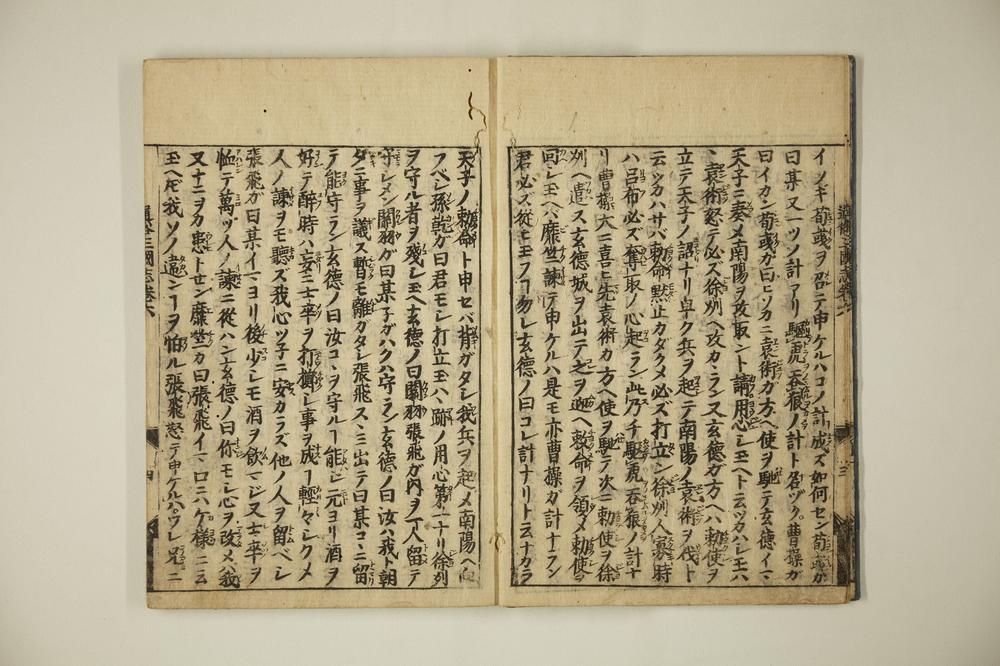 イソギ荀彧ヲ召テ申ケルハコノ計成ズ如何セン荀彧ガ
曰某又一ツノ計アリ驅虎呑狼ノ計ト名ヅク曹操ガ
曰イカン荀彧ガ曰ヒソカニ袁術ガ方ヘ使ヲ馳テ玄徳イマ
天子ニ奏メ南陽ヲ攻取ント請用心シ玉ヘト云ツカハシ玉ハ
袁術怒テ必ズ徐州ヘ攻カヽラン又玄徳ガ方ヘハ勅使ヲ
立テ天子ノ詔ナリ早ク兵ヲ起テ南陽ノ袁術ヲ伐ト
云ツカハサバ勅命黙止カタクメ必ズ打立ン徐州人寡時
ハ呂布必ズ奪取ノ心起ラン此乃チ駆虎呑狼ノ計ナ
リ曹操大ニ喜ヒ先袁術カ方ヘ使ヲ馳テ次ニ勅使ヲ徐
州ヘ遣ス玄徳城ヲ出テ之ヲ迎ヘ勅命ヲ領メ勅使ヲ
回シ玉ヘバ糜竺諫テ申ケルハ是モ亦曹操ガ計ナラン
君必ズ従ヒ玉フ勿レ玄徳ノ曰コレ計ナリト云ナカラ
天子ノ勅命ト申セバ背ガタシ我兵ヲ起メ南陽ヘ向
フベシ孫乾ガ曰君モシ打立玉ハヾ跡ノ用心第一ナリ徐州
ヲ守ル者ヲ残シ玉ヘ玄徳ノ曰關羽張飛ガ内ヲ一人留テ
守シメン關羽ガ曰某子ガハクハ守ラン玄徳ノ曰汝ハ我ト朝
タニ事ヲ議ス暫モ離ガタシ張飛スヽミ出テ曰某コヽニ留
テ能守ラン玄徳ノ曰汝コヽヲ守ルヿ能ジ元ヨリ酒ヲ
好テ醉時ハ妄ニ士卒ヲ打擲シ事ヲ成ヿ輕々シクメ
人ノ諫ヲモ聽ズ我心ツ子ニ安カラズ他ノ人ヲ留ベシ
張飛ガ曰某イマヨリ後少シモ酒ヲ飲マジ又士卒ヲ
恤テ萬ツ人ノ諫ニ從ハン玄徳ノ曰你モシ心ヲ改メハ我
又ナニヲカ患トセン糜竺カ曰張飛イマ口ニハケ様ニ云
玉ヘ𪜈我ソノ違ンヿヲ怕ル張飛怒テ申ケルハワレ兄ニ
通俗三國志巻六
四